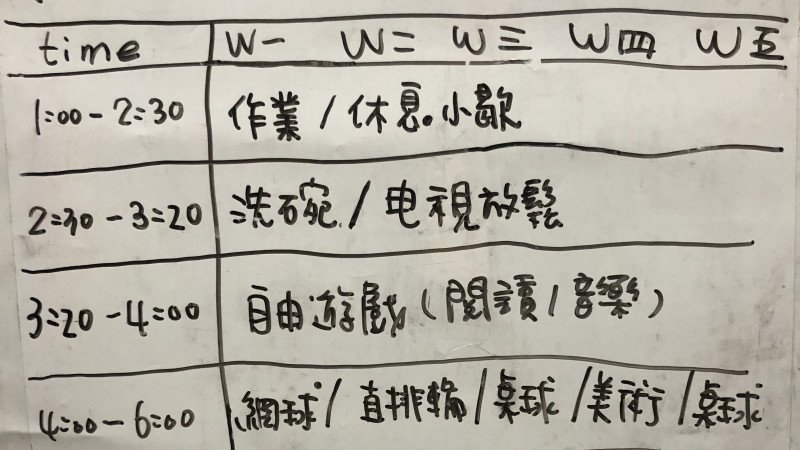 time W一 W二 W三 W四 W五
1:00-2:30 作業/休息。小歇
2:30-3:20 洗碗/电視放鬆
3:20-4:00 自由遊戲(閱讀/音樂)
4:00-6:00 網球/直排輪/桌球/美術/桌球